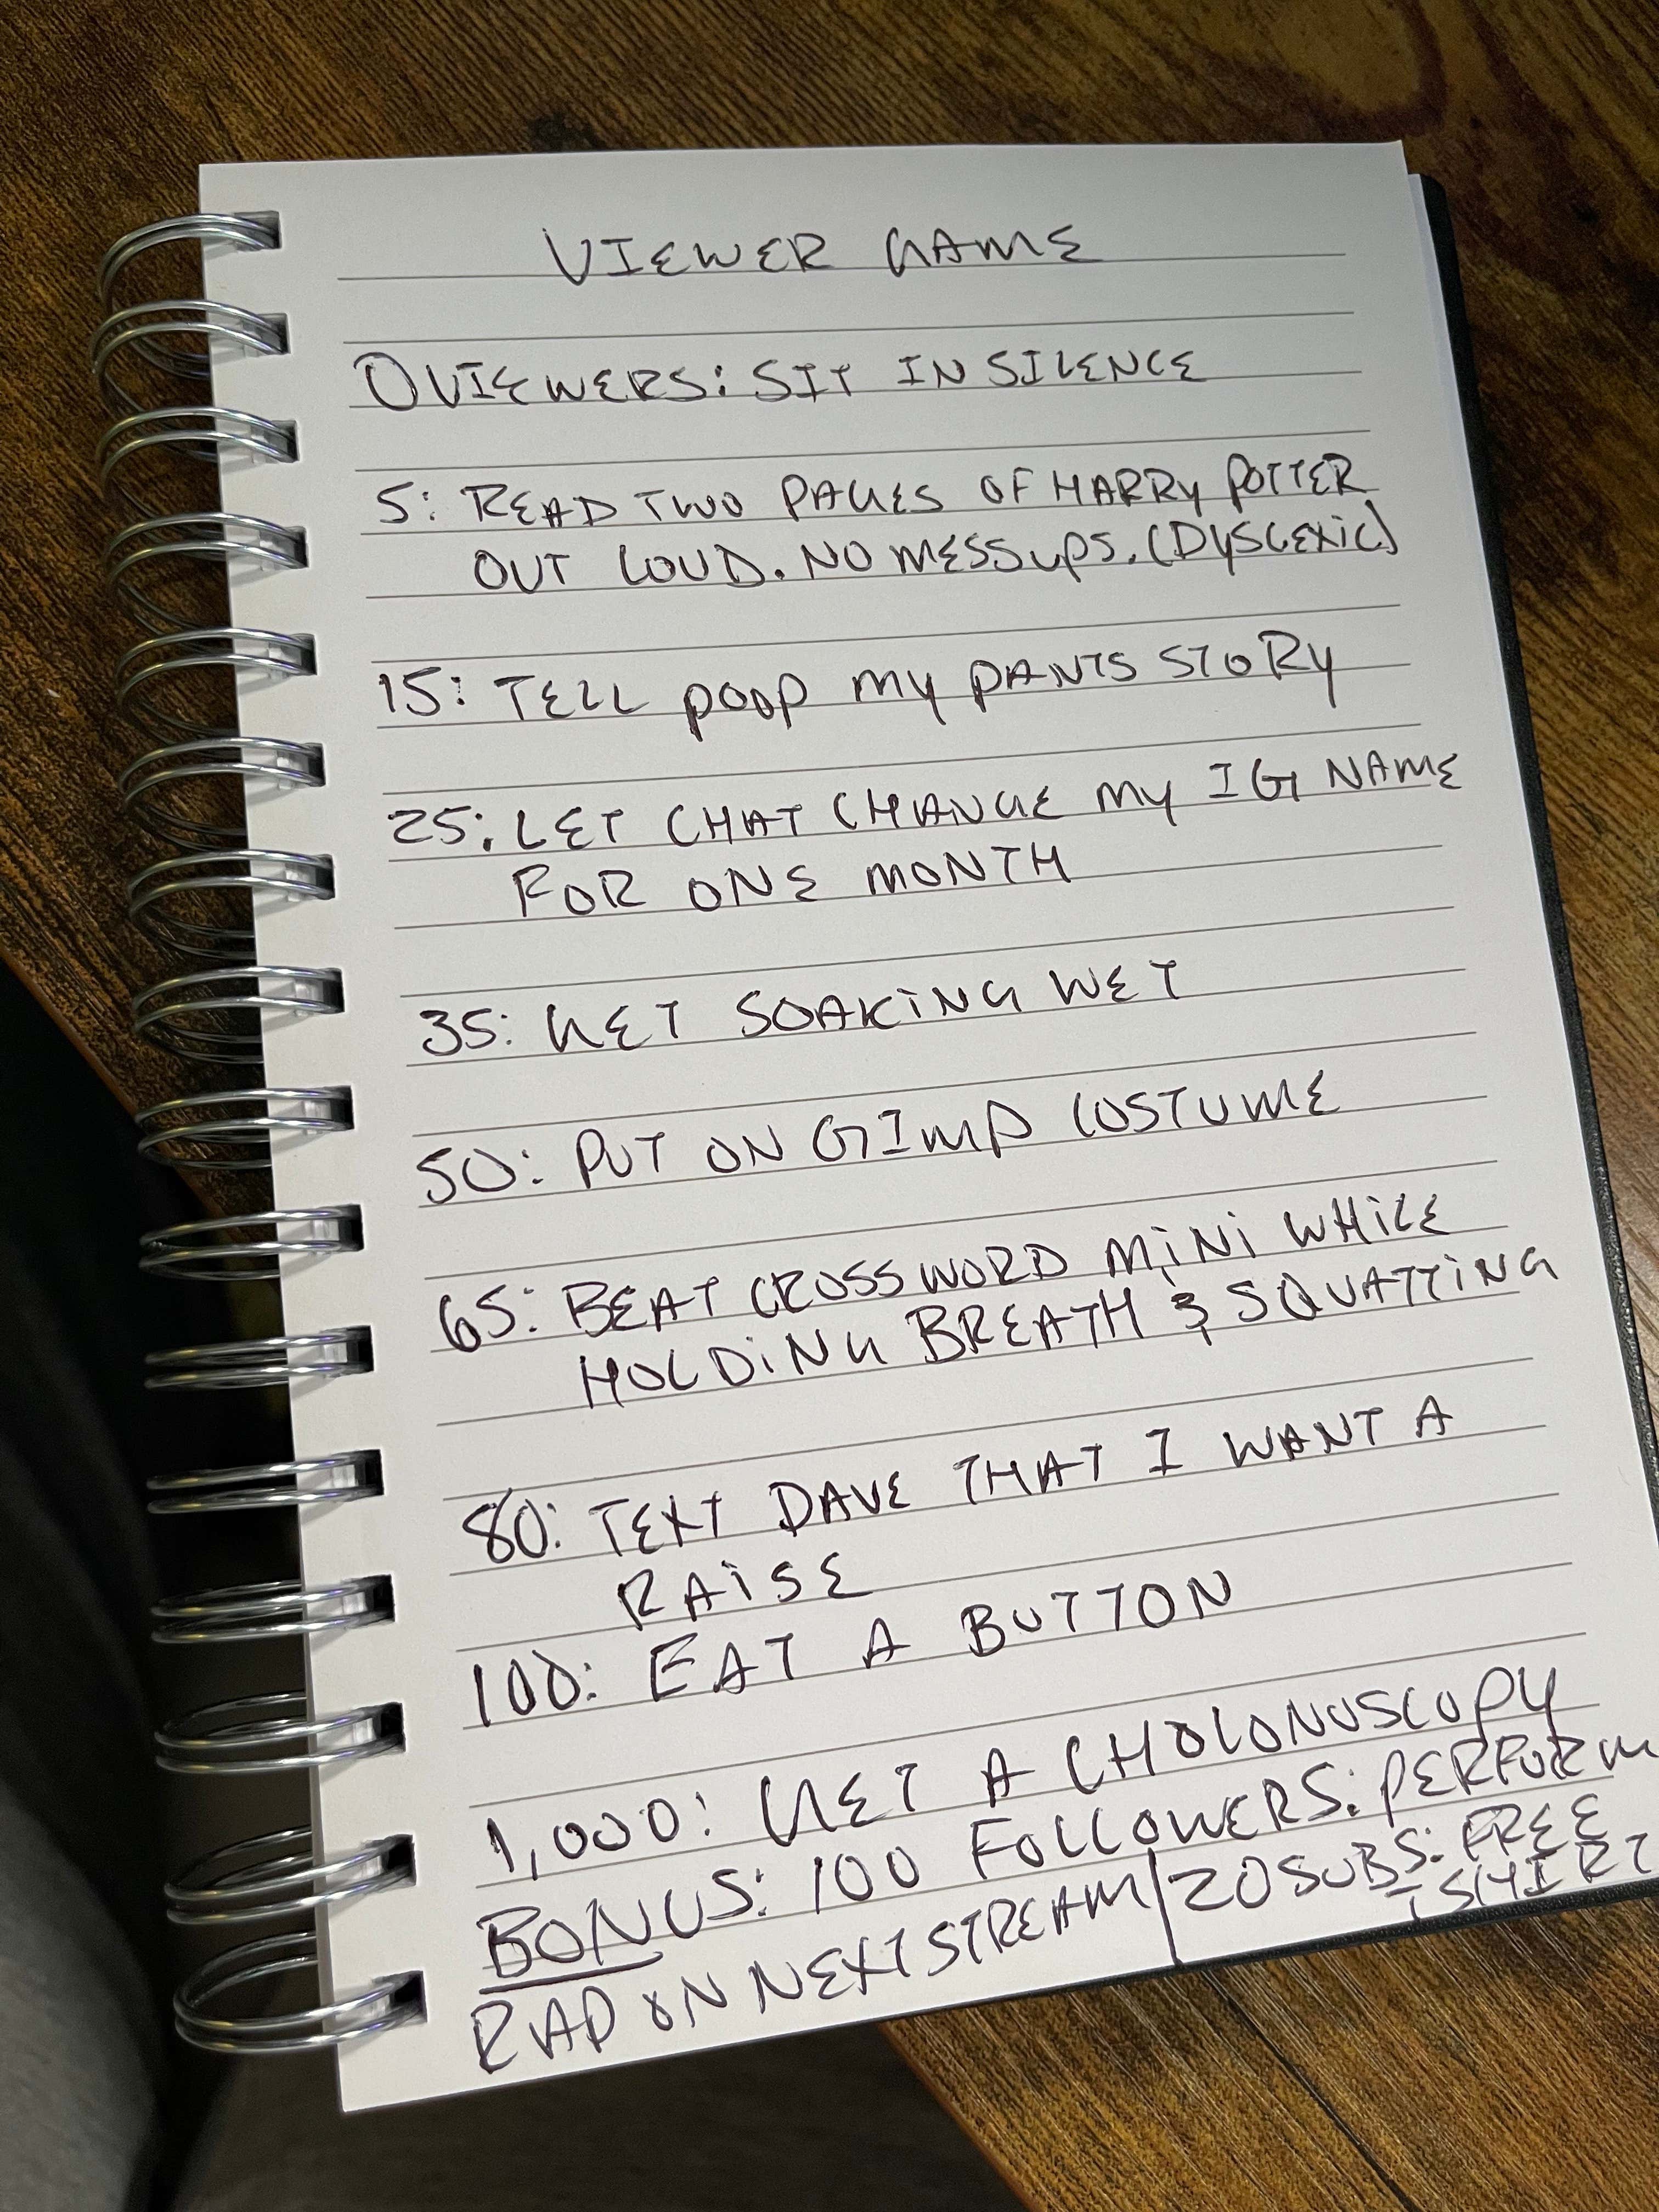 VIEWER GAME
0 VIEWERS: SIT IN SILENCE
5: READ TWO PAGES OF HARRY POTTER
OUT LOUD. NO MESSUPS. (DYSLEXIC)
15: TELL POOP MY PANTS STORY
25: LET CHAT CHANGE MY IG NAME
FOR ONE MONTH
35: GET SOAKING WET
50: PUT ON GIMP COSTUME
65: BEAT CROSSWORD MINI WHILE
HOLDING BREATH & SQUATTING
80: TEXT DAVE THAT I WANT A
RAISE
100: EAT A BUTTON
1,000: GET A CHOLONOSCOPY
BONUS: 100 FOLLOWERS: PERFORM
RAP ON NEXT STREAM | 20 SUBS: FREE
TSHIRT